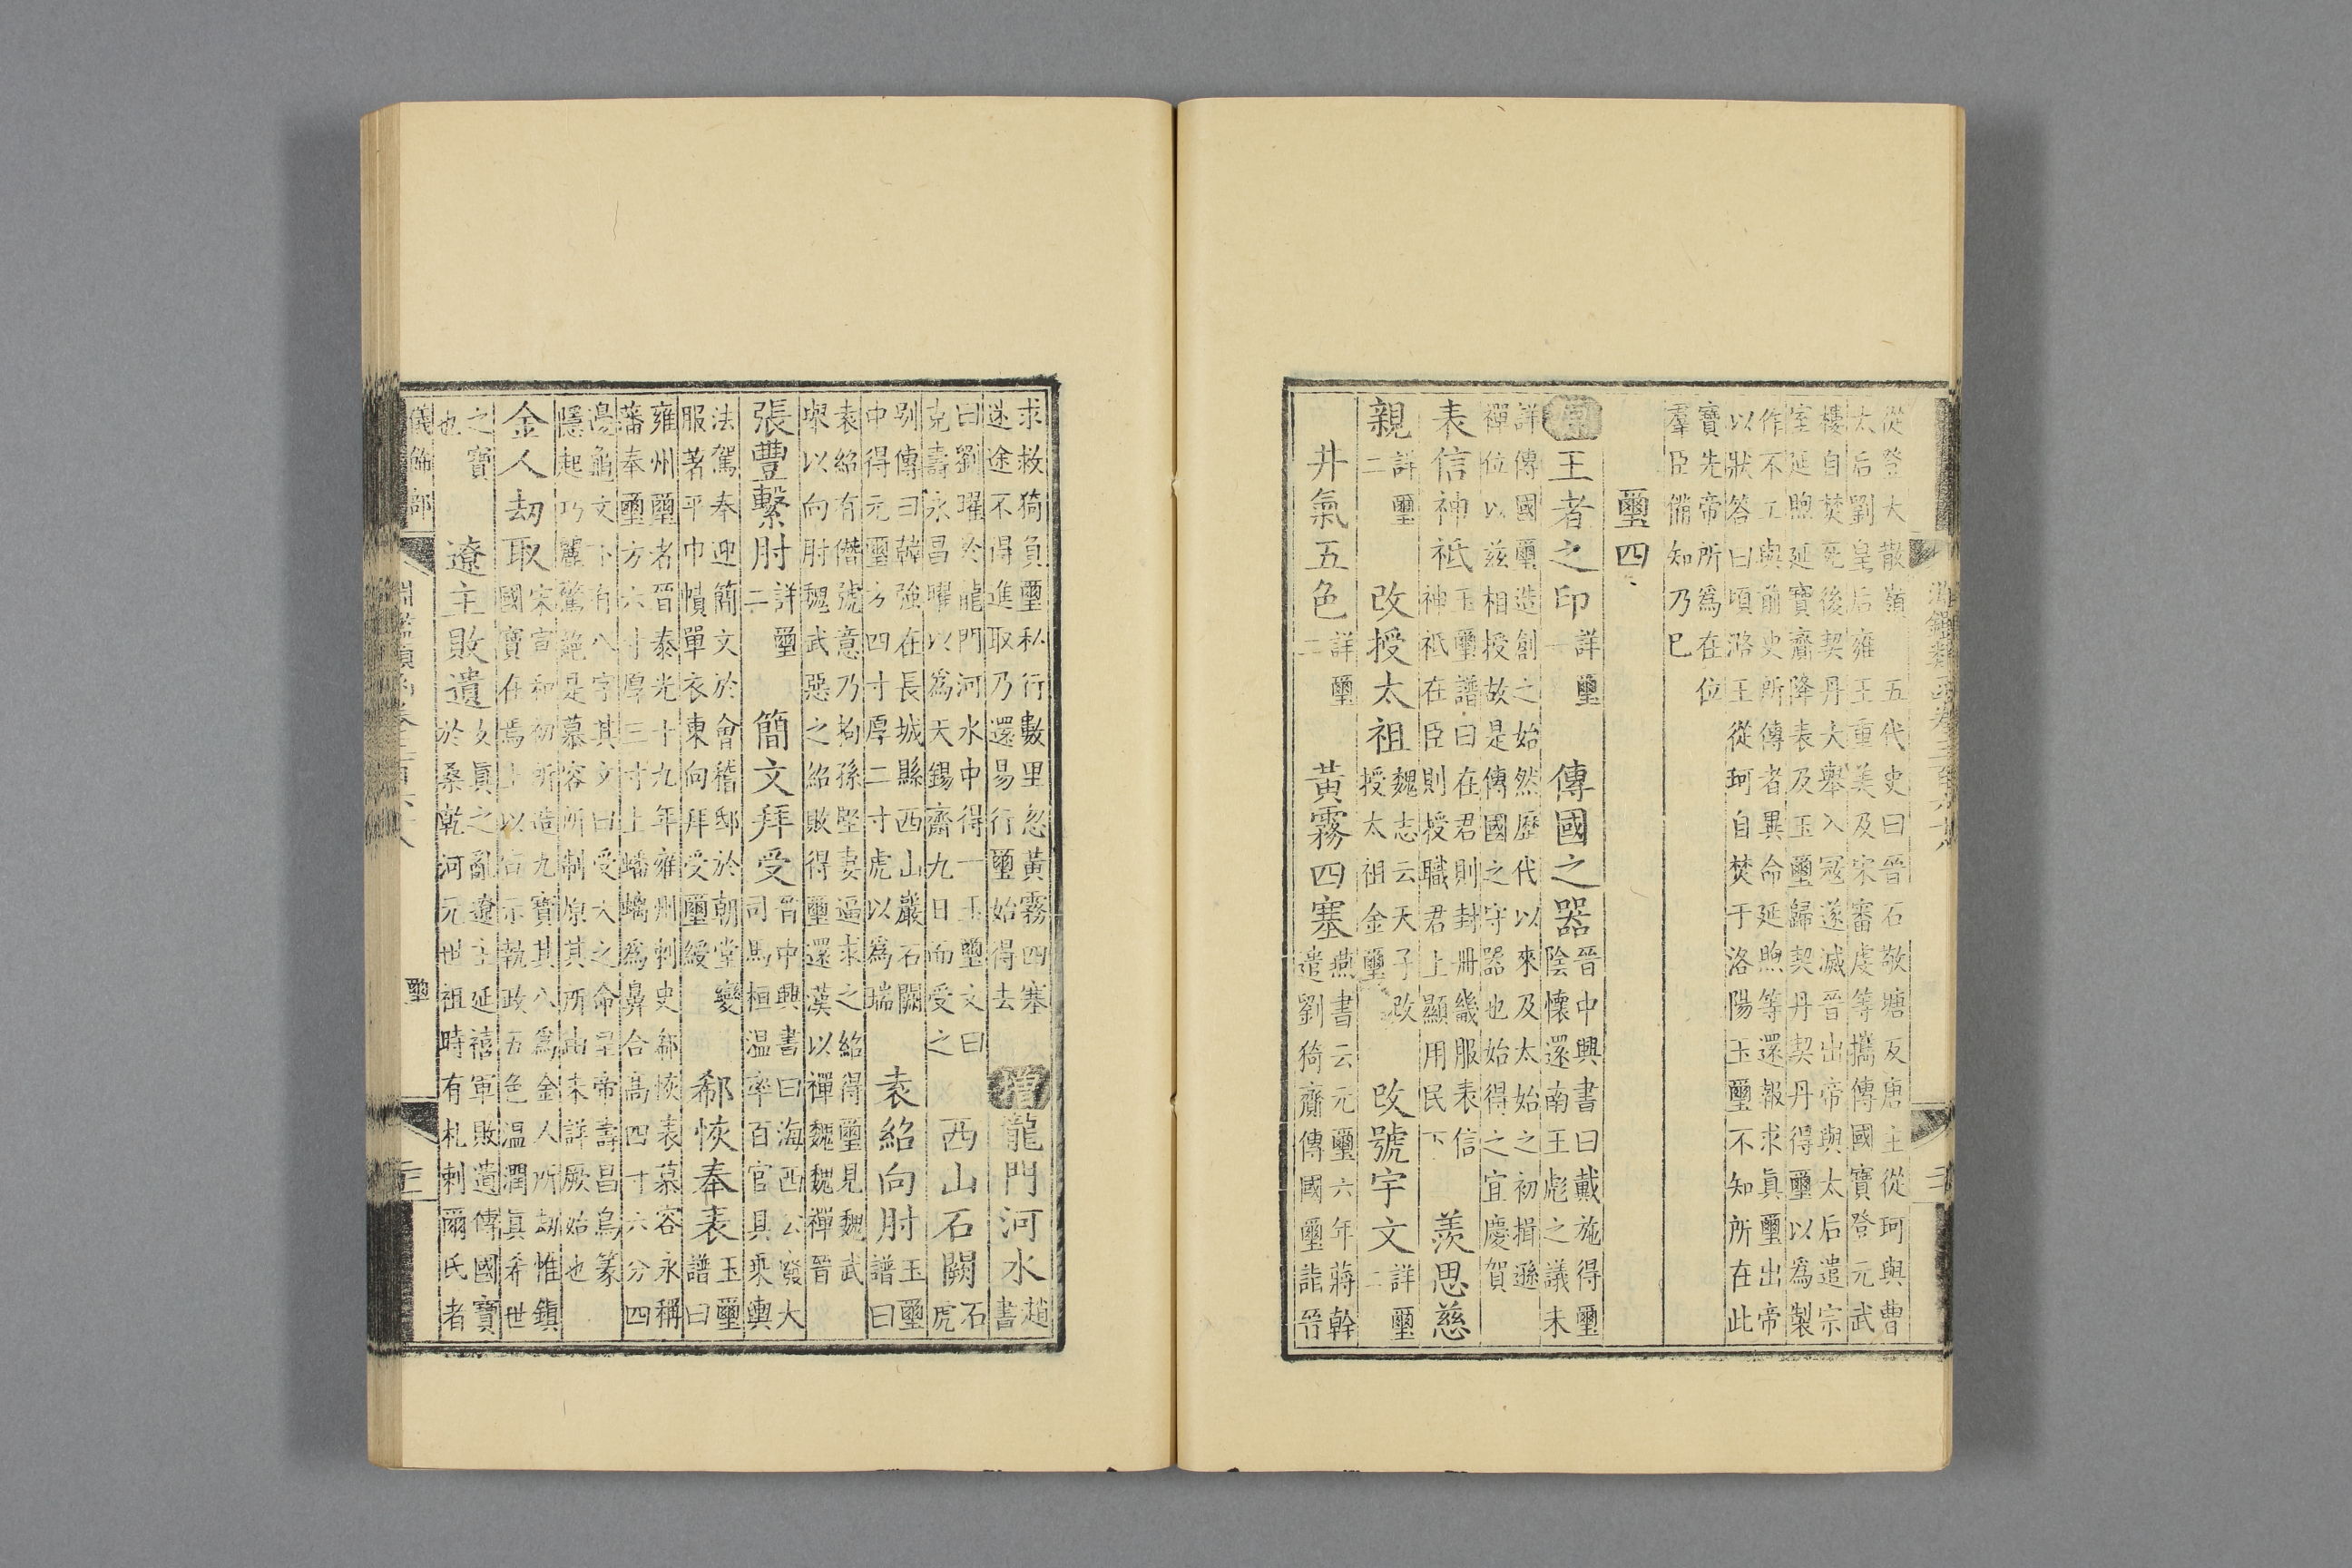 從登大散嶺　五代史曰晉石敬瑭反唐主從珂與曹
太后劉皇后雍王重美及宋審虔等攜傳國寶登元武
樓自焚死後契丹大舉入寇遂滅晉出帝與太后遣宗
室延煦延寶齎降表及玉璽歸契丹契丹得璽以爲製
作不工與前史所傳者異命延煦等還報求眞璽出帝
以狀答曰頃潞王從珂自焚于洛陽玉璽不知所在此
寶先帝所爲在位
羣臣備知乃已
璽四
原王者之印詳璽一　傳國之器晉中興書曰戴施得璽陰懷還南王彪之議未
詳傳國璽造創之始然歷代以來及太始之初揖遜
禪位以茲相授故是傳國之守器也始得之宜慶賀
表信神祇玉璽譜曰在君則封冊畿服表信神祇在臣則授職君上顯用民下　羨思慈
親詳璽二　改授太祖魏志云天子改授太祖金璽　改號宇文詳璽二
井氣五色詳璽二　黃霧四塞燕書云元璽六年蔣幹遣劉猗齎傳國璽詣晉
求救猗負璽私行數里忽黃霧四塞
迷途不得進取乃還易行璽始得去　增龍門河水趙書
曰劉曜於龍門河水中得一玉璽文曰
克壽永昌曜以爲天錫齋九日而受之　西山石闕石虎
別傳曰韓強在長城縣西山巖石闕
中得元璽方四寸厚二寸虎以爲瑞　袁紹向肘玉璽譜曰
袁紹有僭號意乃拘孫堅妻逼求之紹得璽見魏武
舉以向肘魏武惡之紹敗得璽還漢以禪魏魏禪晉
張豐繫肘詳璽二　簡文拜受晉中興書曰海西公廢大司馬桓温率百官具乘輿
法駕奉迎簡文於會稽邸於朝堂變
服著平巾幘單衣東向拜受璽綬　郗恢奉表玉璽譜曰
雍州璽者晉泰光十九年雍州刺史郗恢表慕容永稱
藩奉璽方六寸厚三寸上蟠螭爲鼻合高四寸六分四
邊龜文下有八字其文曰受天之命皇帝壽昌鳥篆
隱起巧麗驚絶是慕容所制原其所由未詳厥始也
金人刼取宋宣和初所造九寶其八爲金人所刼惟鎮國寶在焉上以白示執政五色温潤眞希世
之寶也　遼主敗遺女眞之亂遼主延禧軍敗遺傳國寶於桑乾河元世祖時有札剌爾氏者
儀飾部　淵鑑類函卷三百六十八　璽